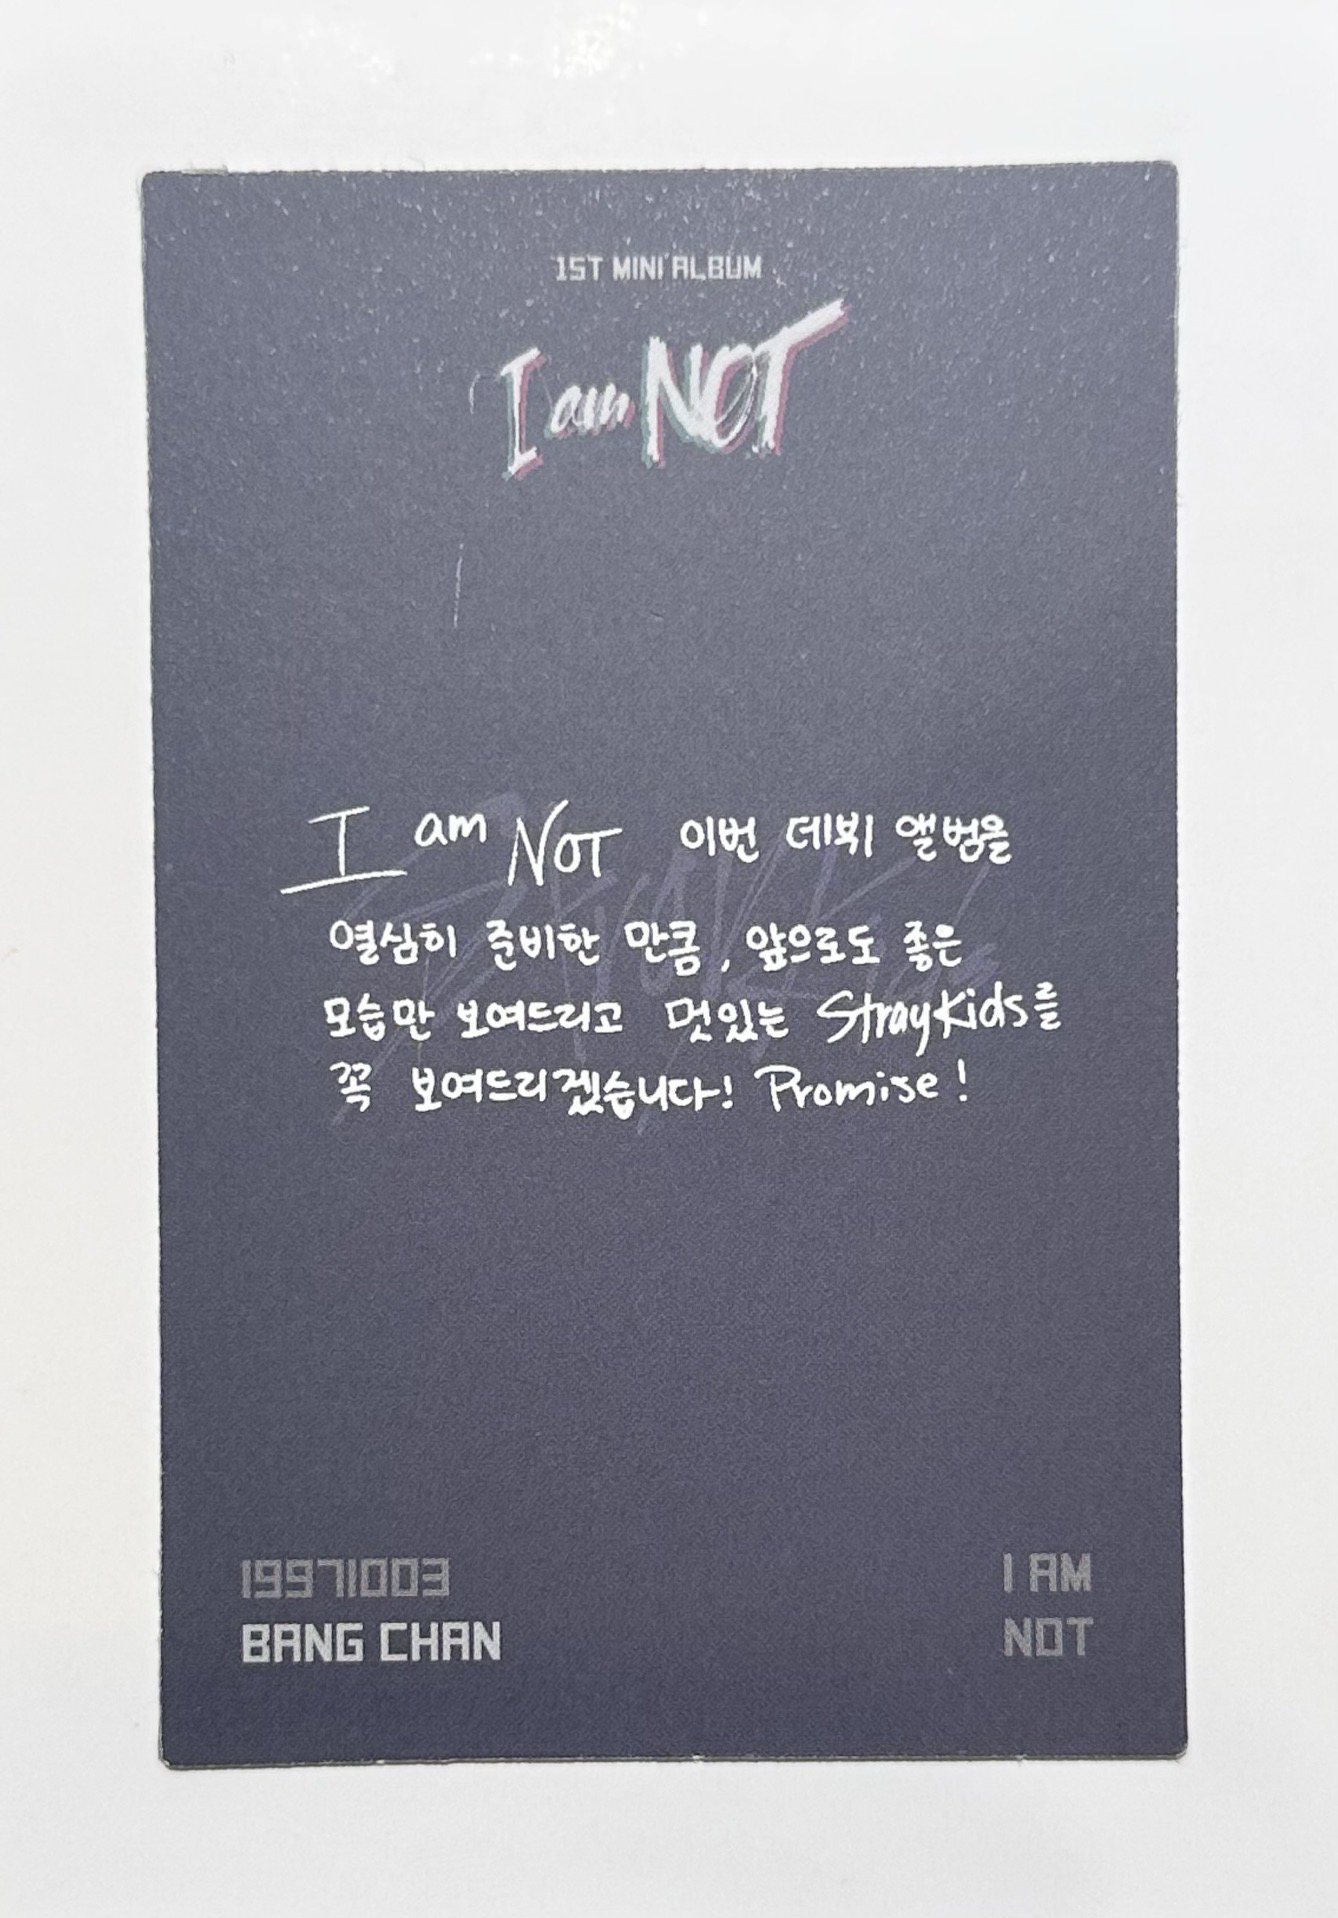 1ST MINI ALBUM
I am NOT
I am NOT 이번 데뷔 앨범을
열심히 준비한 만큼, 앞으로도 좋은
모습만 보여드리고 멋있는 StrayKids를
꼭 보여드리겠습니다! Promise!
19971003
BANG CHAN
I AM
NOT